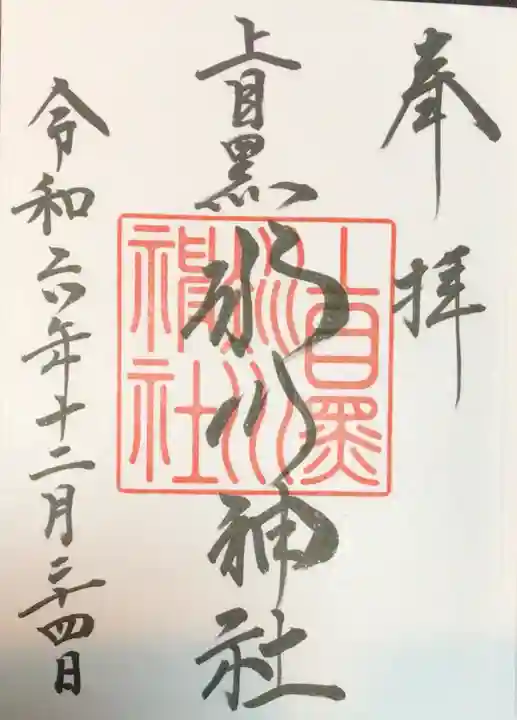 奉拝
上目黒氷川神社
上目黒氷川神社
令和六年十二月二十四日